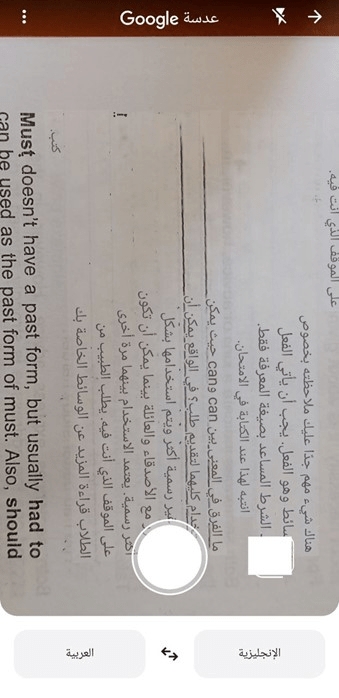 عدسة Google
على الموقف الذي أنت فيه.
هناك شيء مهم جدًا عليك ملاحظته بخصوص
وهو الفعل. يجب أن يأتي الفعل
الشرط المساعد بصيغة المعرفة فقط.
انتبه لهذا عند الكتابة في الامتحان.
ما الفرق في المعنى بين can و can حيث يمكن
كليهما لتقديم طلب؟ في الواقع يمكن أن
غير رسمية أكثر ويتم استخدامها بشكل
مع الأصدقاء والعائلة بينما يمكن أن تكون
أكثر رسمية. يعتمد الاستخدام بينهما مرة أخرى
على الموقف الذي أنت فيه. يطلب الطبيب من
الطلاب قراءة المزيد عن الوسائط الخاصة بك
كتب.
Must doesn't have a past form, but usually had to
can be used as the past form of must. Also, should
العربية
الإنجليزية